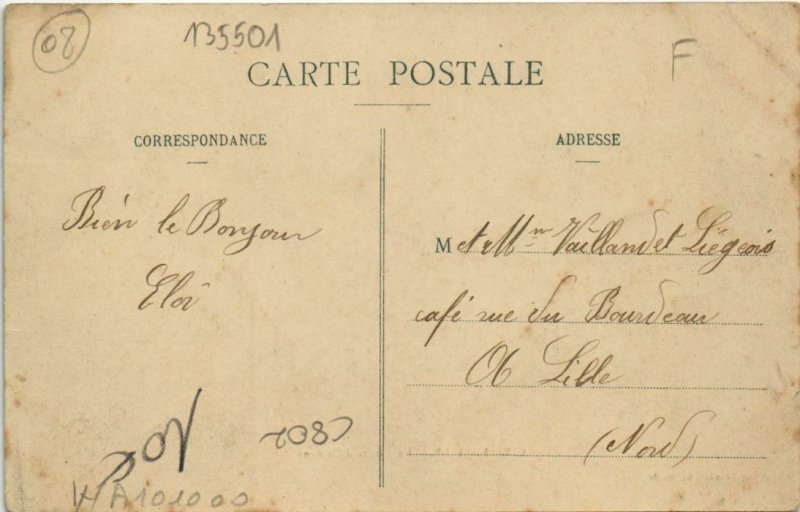 08
135501
F
CARTE POSTALE
CORRESPONDANCE
ADRESSE
Bien le Bonjour
Eloi
M et Mme Vailland et Liégeois
café rue du Bourdeau
à Lille
(Nord)
WA101000